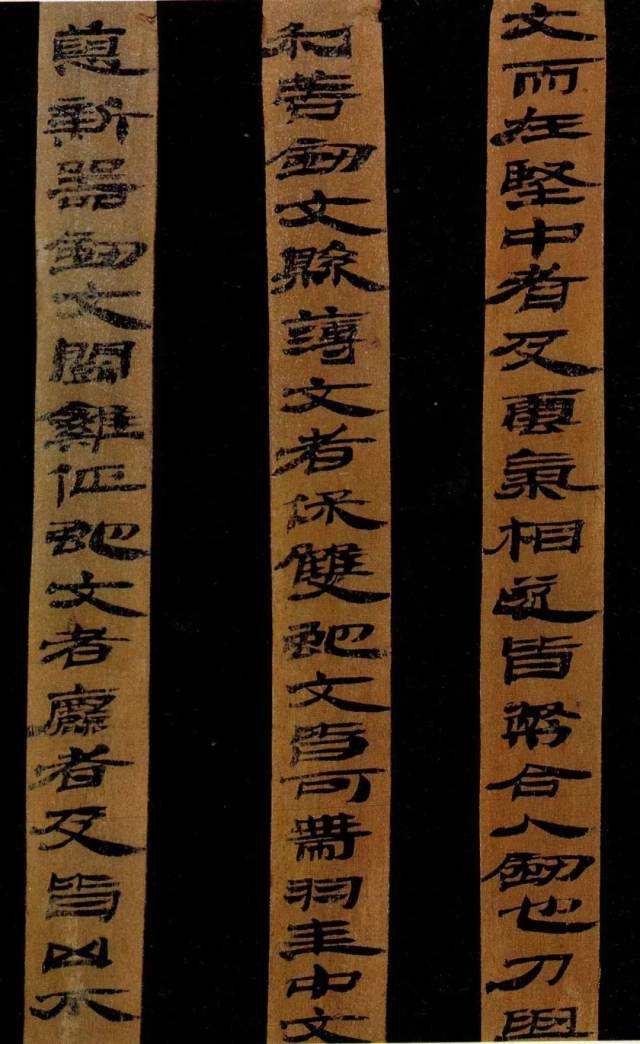 文而在堅中者及雲氣相遂皆幣合人劍也刀與
利善劍文縣薄文者保雙蛇文皆可帶羽圭中文
惡新器劍文鬭雞佂蛇文者麤者及皆凶不